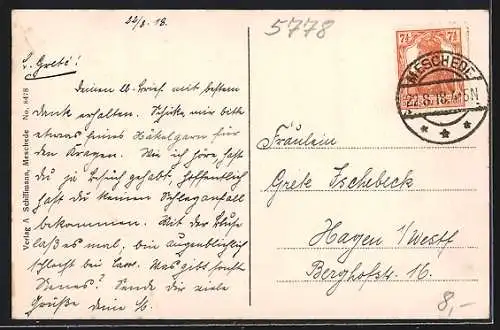 22/8. 18.
5778
L. Grete!
Deinen lb. Brief mit bestem
Dank erhalten. Schicke mir bitte
etwas feines Häkelgarn für
den Kragen. Wie ich höre hast
du ja Besuch gehabt, hoffentlich
hast du keinen Schlaganfall
bekommen. Mit der Bluse
laß es mal, bin augenblicklich
schlecht bei Cass. Was gibt sonst
Neues? Sende dir viele
Grüße deine
Verlag A Schöllmann, Meschede No. 8478
7½ 7½
MESCHEDE
22.8.18. 5N
Fräulein
Grete Tschebeck
Hagen i/Westf
Berghofstr. 16.
8,-